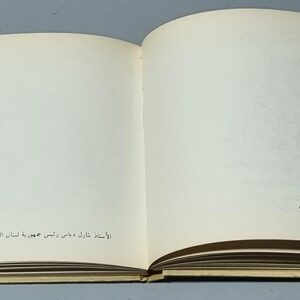 الأستاذ شارل دباس رئيس جمهورية لبنان